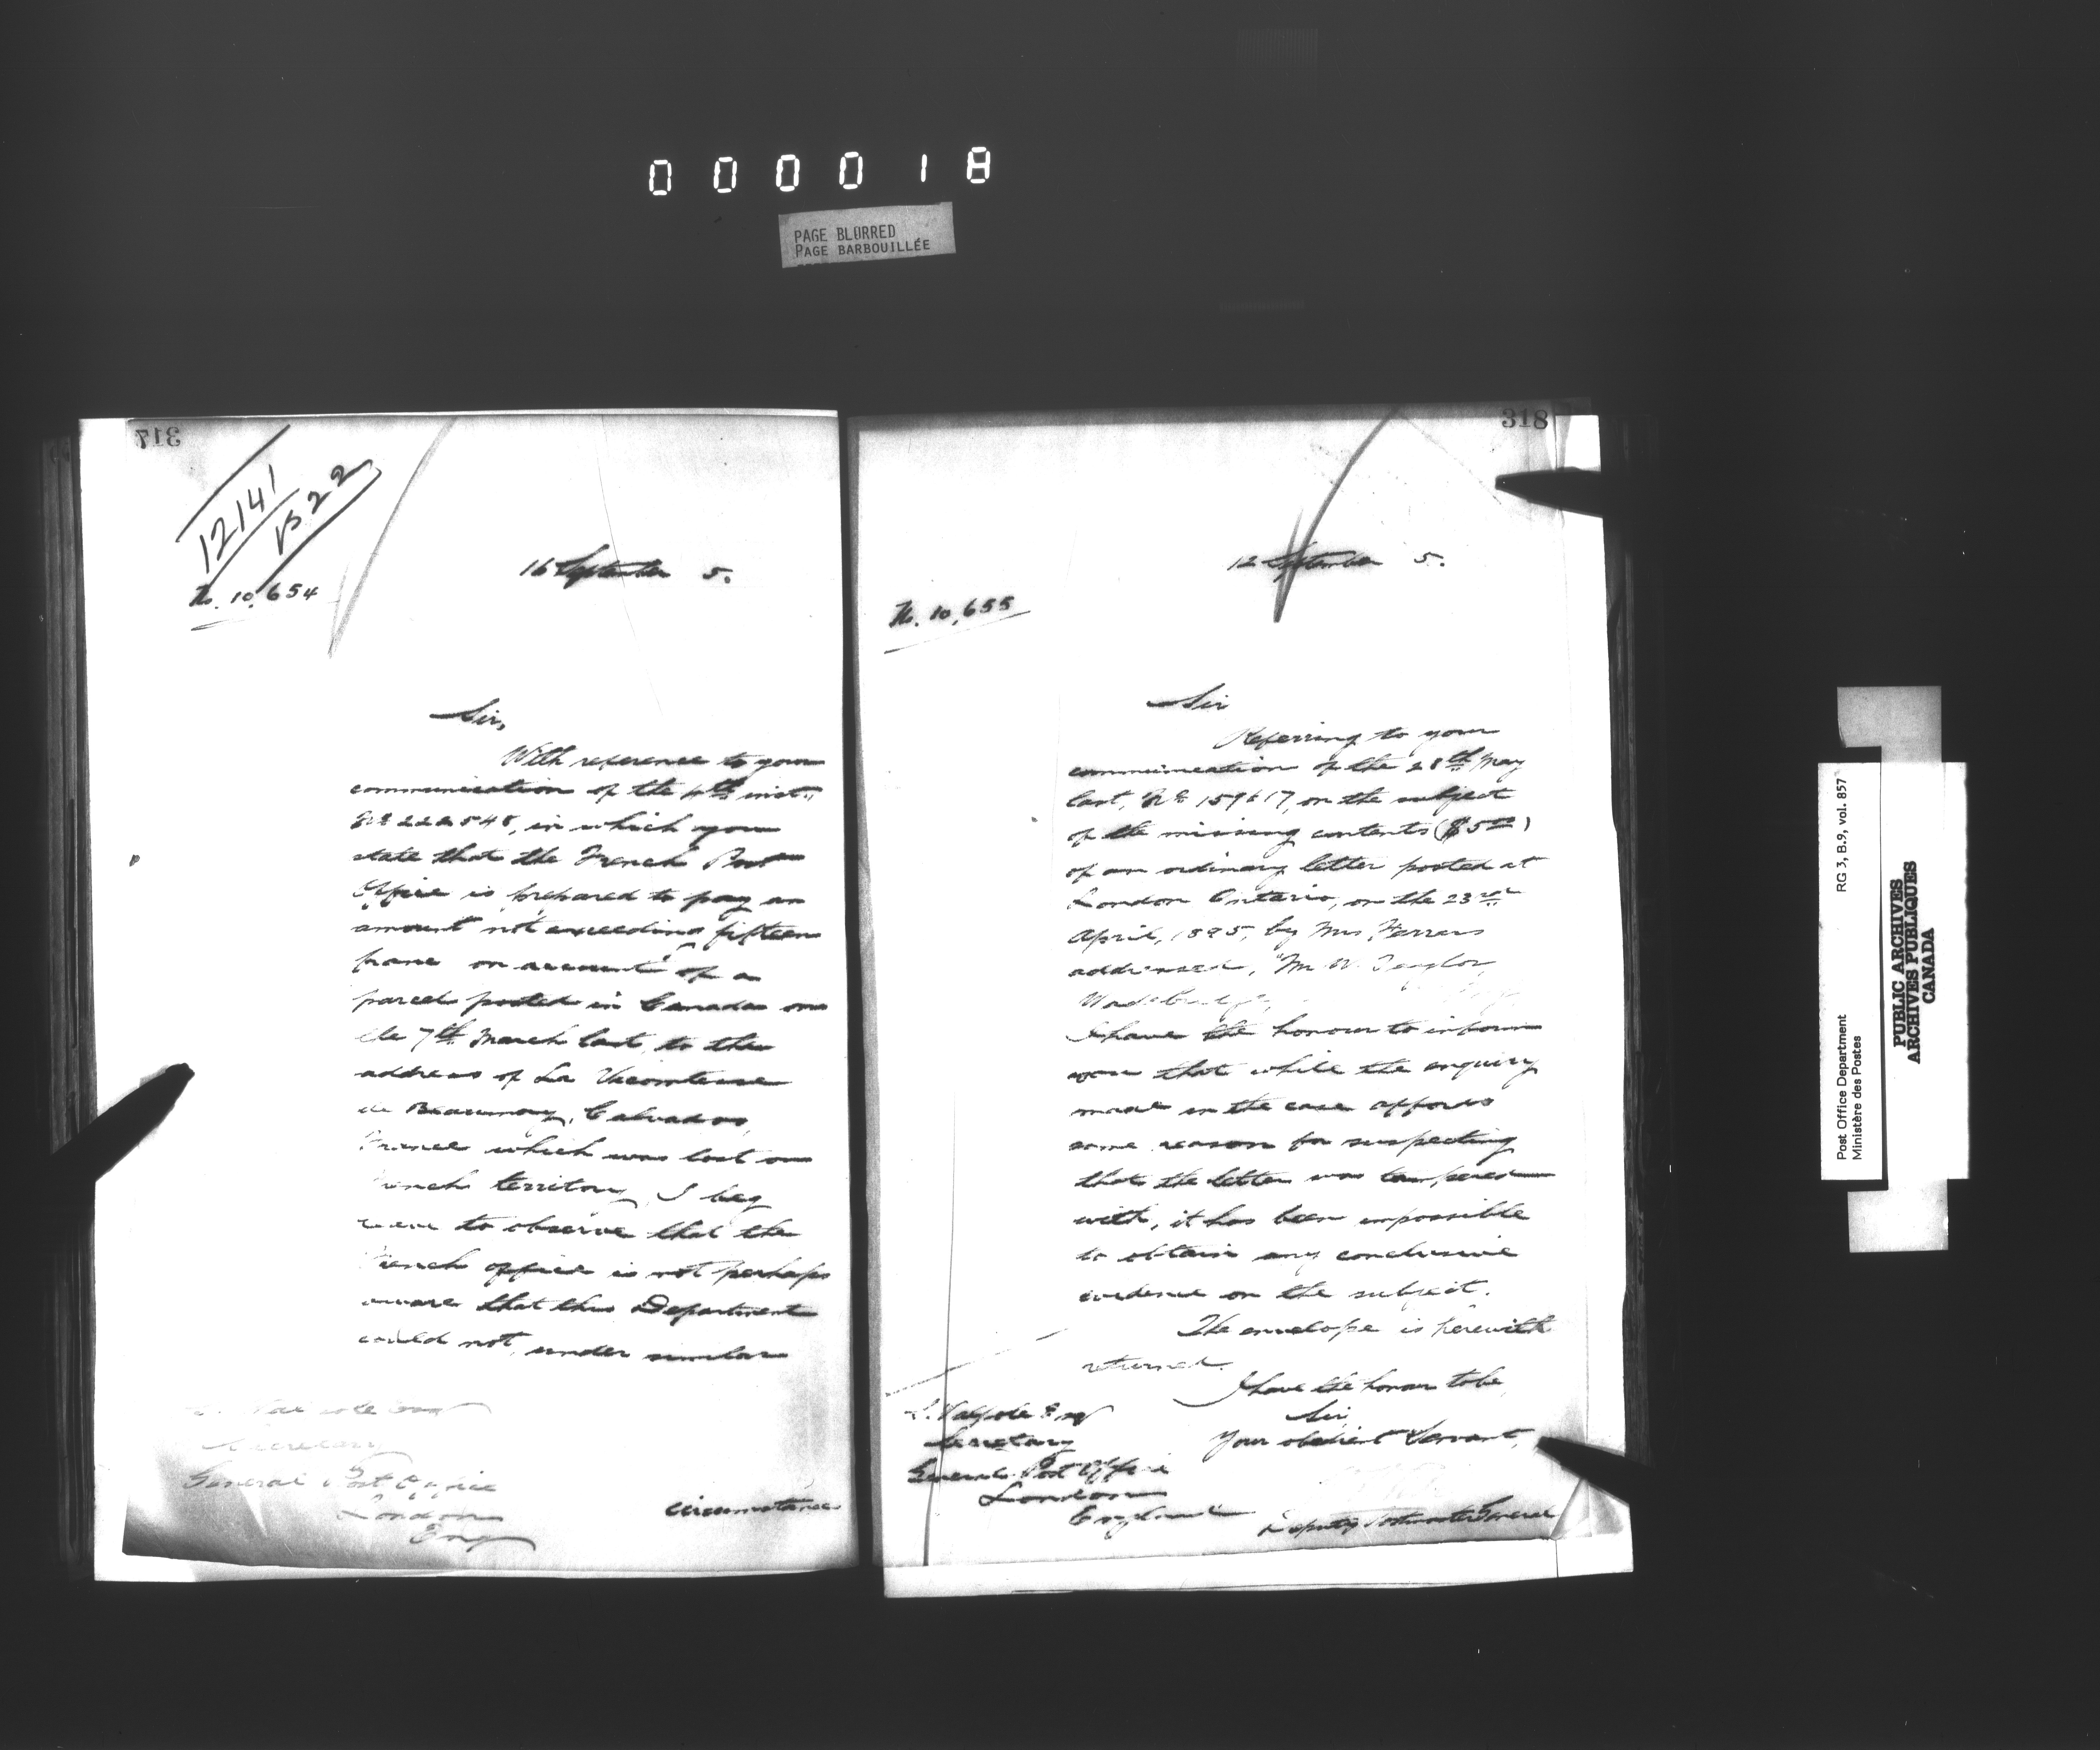 000018
PAGE BLURRED
PAGE BARBOUILLÉE
317
12141
1522
No. 10,654
16 September 5.
Sir,
With reference to your
communication of the 4th inst.,
No 222548, in which you
state that the French Post
Office is prepared to pay an
amount not exceeding fifteen
franc on account of a
parcel posted in Canada on
the 7th March last, to the
address of La Vicomtesse
de Calvados,
France which was lost on
French territory, I beg
leave to observe that the
French office is not perhaps
aware that this Department
could not, under similar
Secretary
General Post Office
London
Eng
circumstances
318
12 September 5.
No. 10,655
Sir
Referring to your
communication of the 28th May
last, No 159617, on the subject
of the missing contents ($5.00)
of an ordinary letter posted at
London Ontario, on the 23rd
April, 1895, by Mrs. Ferrers
addressed, "Mr. W. Taylor,
I have the honour to inform
you that while the enquiry
made in the case affords
some reason for suspecting
that the letter was tampered
with, it has been impossible
to obtain any conclusive
evidence on the subject.
The envelope is herewith
returned.
I have the honour to be
Sir,
Your obedient Servant,
S. Walpole Esq
Secretary
General Post Office
London
England
Deputy Postmaster General
Post Office Department
Ministère des Postes
RG 3, B.9, vol. 857
PUBLIC ARCHIVES
ARCHIVES PUBLIQUES
CANADA